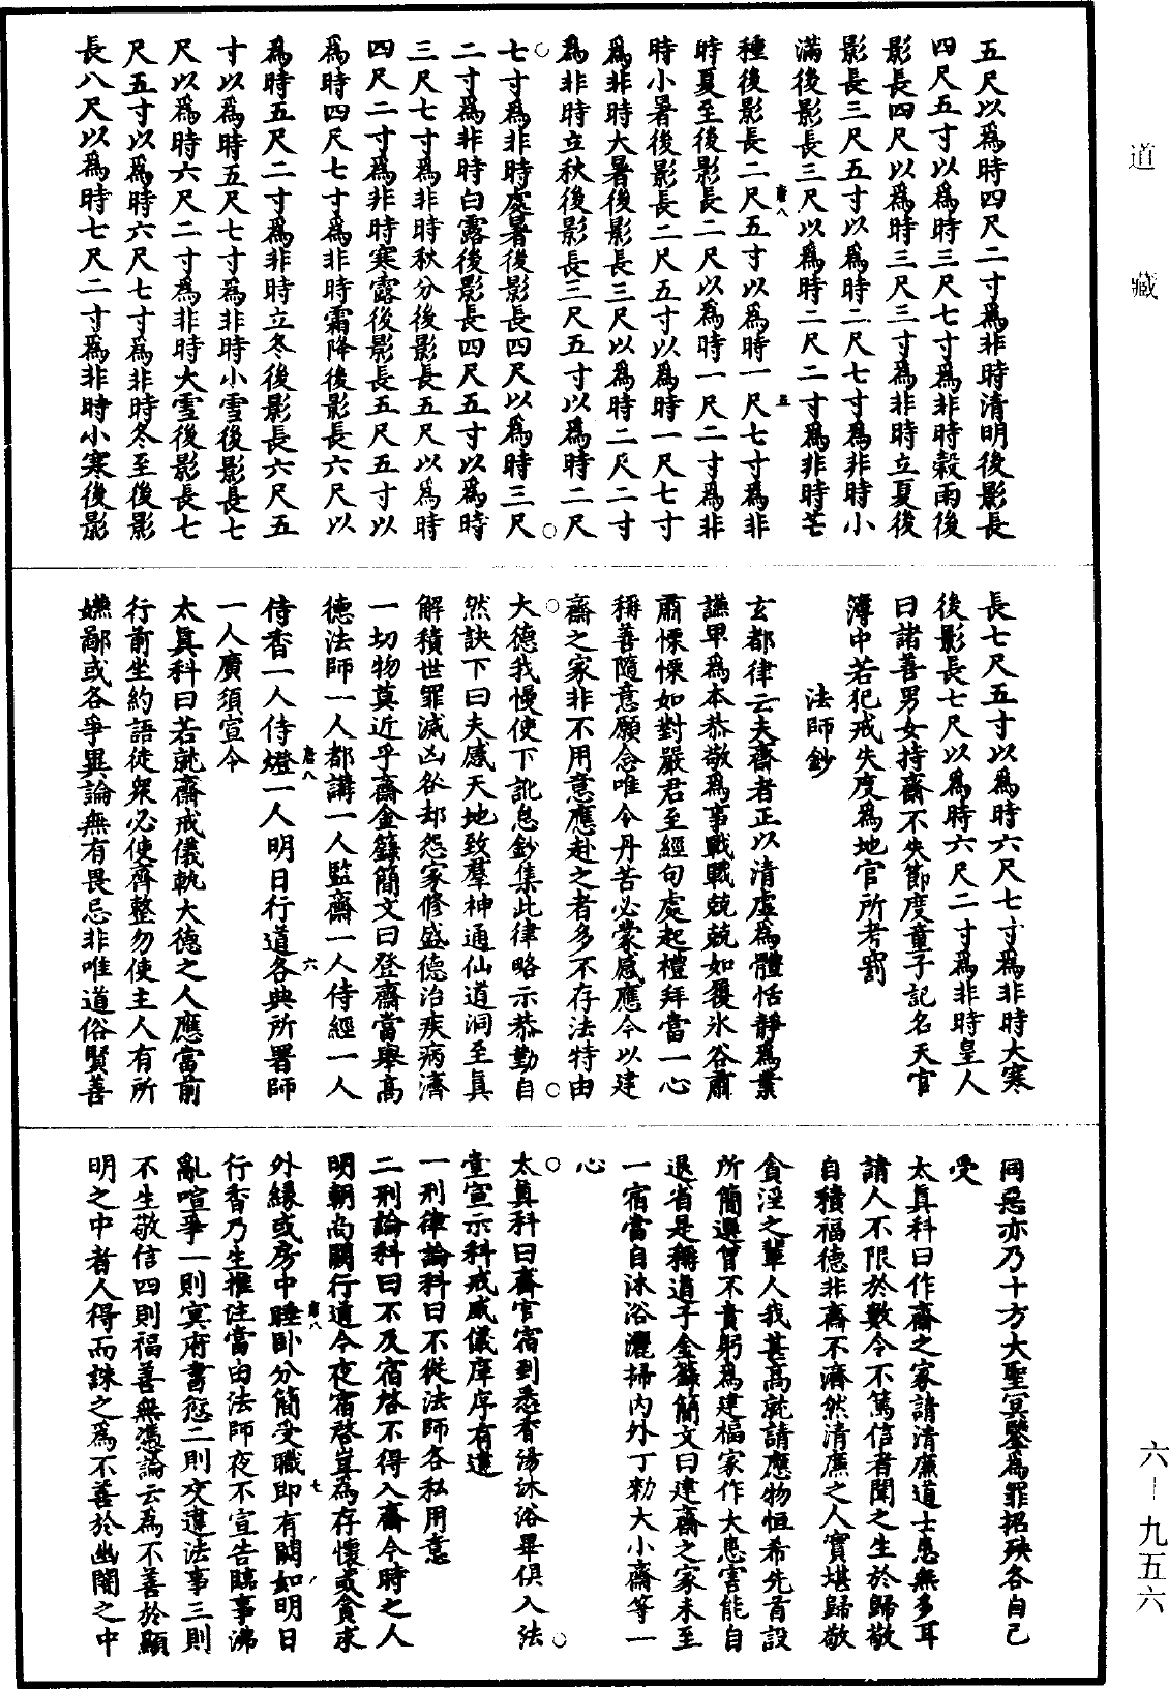 五尺以爲時四尺二寸爲非時清明後影長
四尺五寸以爲時三尺七寸爲非時穀雨後
影長四尺以爲時三尺三寸爲非時立夏後
影長三尺五寸以爲時二尺七寸爲非時小
滿後影長三尺以爲時二尺二寸爲非時芒
種後影長二尺五寸以爲時一尺七寸爲非
時夏至後影長二尺以爲時一尺二寸爲非
時小暑後影長二尺五寸以爲時一尺七寸
爲非時大暑後影長三尺以爲時二尺二寸
爲非時立秋後影長三尺五寸以爲時二尺
七寸爲非時處暑後影長四尺以爲時三尺
二寸爲非時白露後影長四尺五寸以爲時
三尺七寸爲非時秋分後影長五尺以爲時
四尺二寸爲非時寒露後影長五尺五寸以
爲時四尺七寸爲非時霜降後影長六尺以
爲時五尺二寸爲非時立冬後影長六尺五
寸以爲時五尺七寸爲非時小雪後影長七
尺以爲時六尺二寸爲非時大雪後影長七
尺五寸以爲時六尺七寸爲非時冬至後影
長八尺以爲時七尺二寸爲非時小寒後影
長七尺五寸以爲時六尺七寸爲非時大寒
後影長七尺以爲時六尺二寸爲非時皇人
曰諸善男女持齋不失節度童子記名天官
簿中若犯戒失度爲地官所考罰
法師鈔
玄都律云夫齋者正以清虛爲體恬靜爲業
謙卑爲本恭敬爲事戰戰兢兢如履冰谷肅
肅慄慄如對嚴君至經句處起禮拜當一心
稱善隨意願念唯令丹苦必蒙感應今以建
齋之家非不用意應赴之者多不存法特由
大德我慢使下訛怠鈔集此律略示恭勤自
然訣下曰夫感天地致羣神通仙道洞至真
解積世罪滅凶咎却怨家修盛德治疾病濟
一切物莫近乎齋金籙簡文曰登齋當舉高
德法師一人都講一人監齋一人侍經一人
侍香一人侍燈一人明日行道各典所署師
一人廣須宣令
太真科曰若就齋戒儀軌大德之人應當前
行前坐約語徒衆必使齊整勿使主人有所
嫌鄙或各爭異論無有畏忌非唯道俗賢善
同惡亦乃十方大聖冥鑒爲罪招殃各自己
受
太真科曰作齋之家請清廉道士患無多耳
請人不限於數今不篤信者聞之生於歸敬
自積福德非齋不濟然清廉之人實堪歸敬
貪淫之輩人我甚高就請應物恒希先首設
所簡選曾不責躬爲建福家作大患害能自
退省是稱道子金籙簡文曰建齋之家未至
一宿當自沐浴灑掃内外丁勑大小齋等一
心
太真科曰齋官宿到悉香湯沐浴畢俱入法
堂宣示科戒威儀庠序有違
一刑律論科曰不從法師各私用意
二刑論科曰不及宿啓不得入齋今時之人
明朝尚闕行道今夜宿啓豈爲存懷或貪求
外緣或房中睡卧分簡受職即有闕如明日
行香乃生推注當由法師夜不宣告臨事沸
亂喧爭一則冥府書愆二則交違法事三則
不生敬信四則福善無憑論云爲不善於顯
明之中者人得而誅之爲不善於幽闇之中
唐八
五
唐八
六
唐八
七
道藏
六－九五六